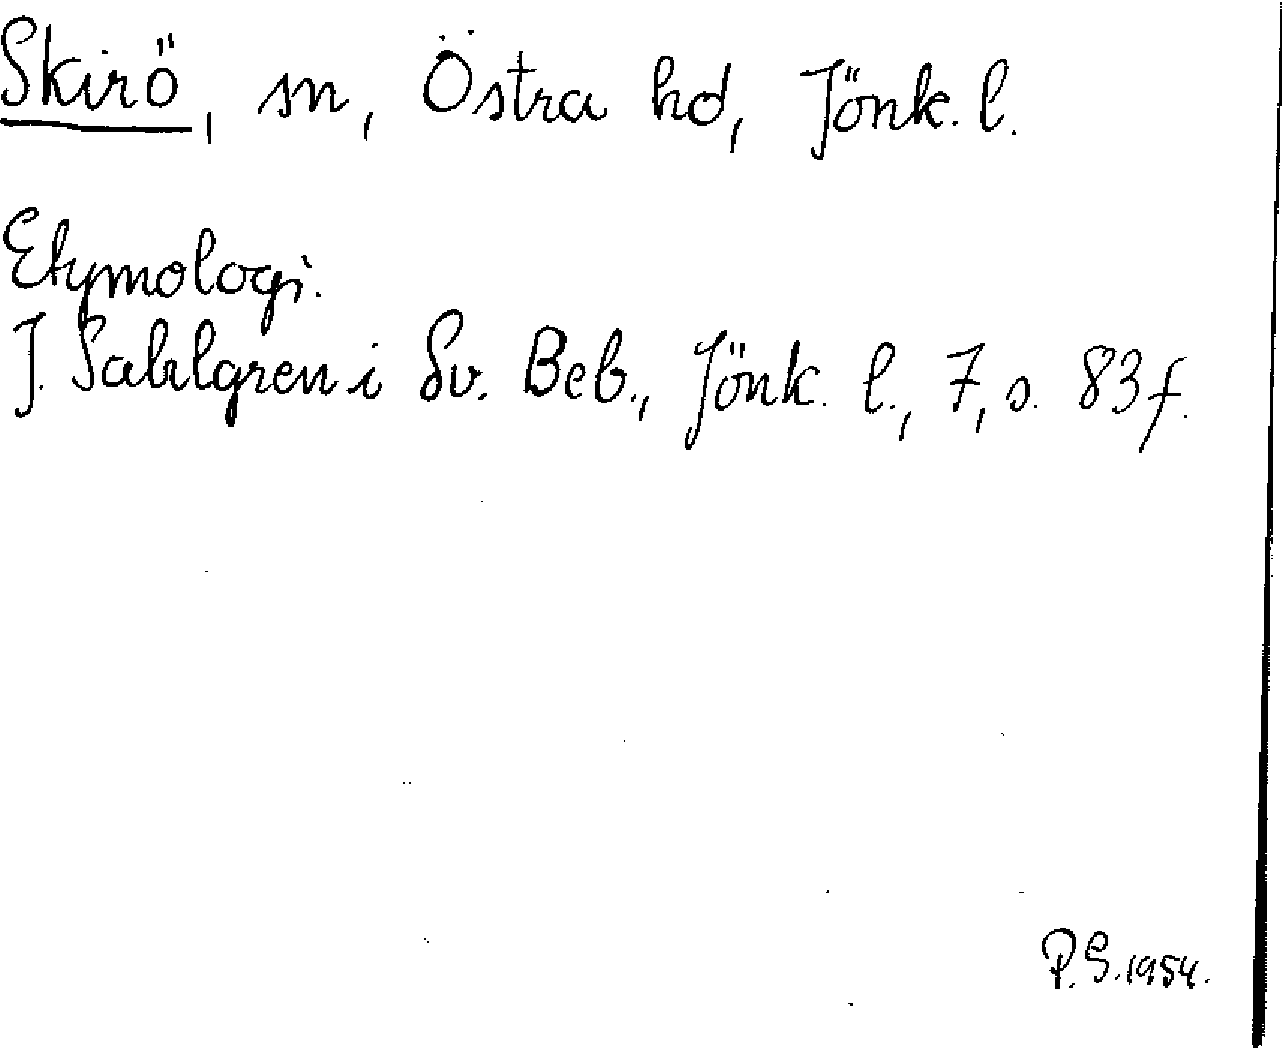 Skirö, sn, Östra hd, Jönk. l.
Etymologi.
J. Sahlgren i Sv. Beb., Jönk. l., 7, s. 83 f.
P.S. 1954.